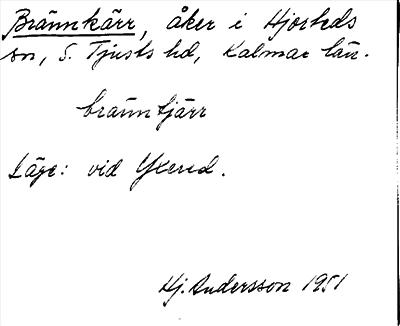 Brännkärr, åker i Hjorteds
sn, S. Tjusts hd, Kalmar län.
bränntjärr
Läge: vid Yxered.
Hj. Andersson 1951